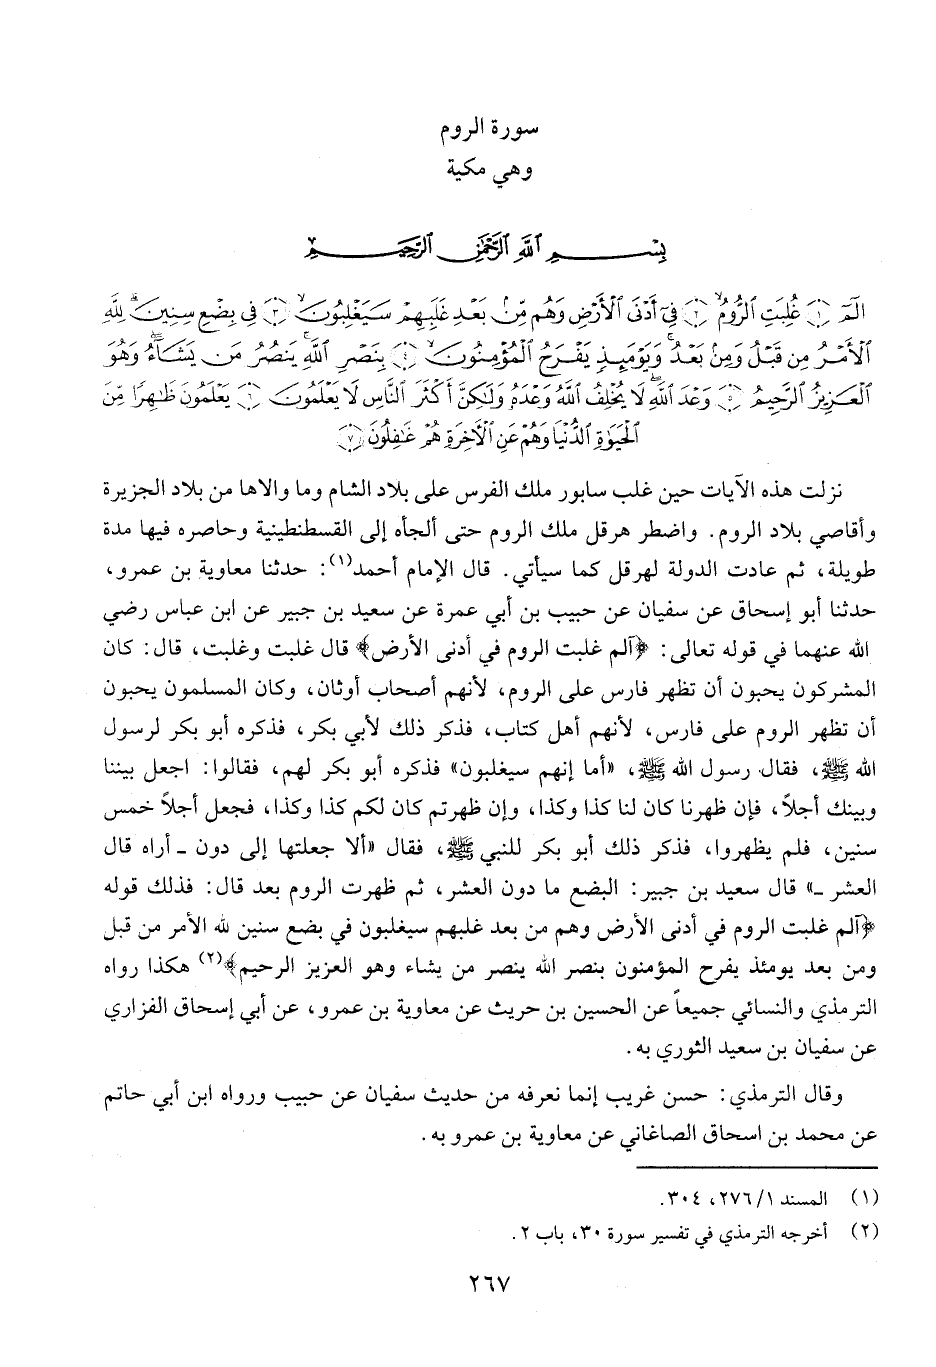 سورة الروم
وهي مكية
بِسْمِ اللَّهِ الرَّحْمَٰنِ الرَّحِيمِ
الٓمٓ ﴿١﴾ غُلِبَتِ ٱلرُّومُ ﴿٢﴾ فِىٓ أَدْنَى ٱلْأَرْضِ وَهُم مِّنۢ بَعْدِ غَلَبِهِمْ سَيَغْلِبُونَ ﴿٣﴾ فِى بِضْعِ سِنِينَ ۗ لِلَّهِ
ٱلْأَمْرُ مِن قَبْلُ وَمِنۢ بَعْدُ ۚ وَيَوْمَئِذٍ يَفْرَحُ ٱلْمُؤْمِنُونَ ﴿٤﴾ بِنَصْرِ ٱللَّهِ ۚ يَنصُرُ مَن يَشَآءُ ۖ وَهُوَ
ٱلْعَزِيزُ ٱلرَّحِيمُ ﴿٥﴾ وَعْدَ ٱللَّهِ ۖ لَا يُخْلِفُ ٱللَّهُ وَعْدَهُۥ وَلَٰكِنَّ أَكْثَرَ ٱلنَّاسِ لَا يَعْلَمُونَ ﴿٦﴾ يَعْلَمُونَ ظَٰهِرًا مِّنَ
ٱلْحَيَوٰةِ ٱلدُّنْيَا وَهُمْ عَنِ ٱلْءَاخِرَةِ هُمْ غَٰفِلُونَ ﴿٧﴾
نزلت هذه الآيات حين غلب سابور ملك الفرس على بلاد الشام وما والاها من بلاد الجزيرة
وأقاصي بلاد الروم. واضطر هرقل ملك الروم حتى ألجأه إلى القسطنطينية وحاصره فيها مدة
طويلة، ثم عادت الدولة لهرقل كما سيأتي. قال الإمام أحمد(١): حدثنا معاوية بن عمرو،
حدثنا أبو إسحاق عن سفيان عن حبيب بن أبي عمرة عن سعيد بن جبير عن ابن عباس رضي
الله عنهما في قوله تعالى: ﴿آلم غلبت الروم في أدنى الأرض﴾ قال غلبت وغلبت، قال: كان
المشركون يحبون أن تظهر فارس على الروم، لأنهم أصحاب أوثان، وكان المسلمون يحبون
أن تظهر الروم على فارس، لأنهم أهل كتاب، فذكر ذلك لأبي بكر، فذكره أبو بكر لرسول
الله ﷺ، فقال رسول الله ﷺ، «أما إنهم سيغلبون» فذكره أبو بكر لهم، فقالوا: اجعل بيننا
وبينك أجلاً، فإن ظهرنا كان لنا كذا وكذا، وإن ظهرتم كان لكم كذا وكذا، فجعل أجلاً خمس
سنين، فلم يظهروا، فذكر ذلك أبو بكر للنبي ﷺ، فقال «ألا جعلتها إلى دون ـ أراه قال
العشر ـ» قال سعيد بن جبير: البضع ما دون العشر، ثم ظهرت الروم بعد قال: فذلك قوله
﴿آلم غلبت الروم في أدنى الأرض وهم من بعد غلبهم سيغلبون في بضع سنين لله الأمر من قبل
ومن بعد يومئذ يفرح المؤمنون بنصر الله ينصر من يشاء وهو العزيز الرحيم﴾(٢) هكذا رواه
الترمذي والنسائي جميعاً عن الحسين بن حريث عن معاوية بن عمرو، عن أبي إسحاق الفزاري
عن سفيان بن سعيد الثوري به.
وقال الترمذي: حسن غريب إنما نعرفه من حديث سفيان عن حبيب ورواه ابن أبي حاتم
عن محمد بن اسحاق الصاغاني عن معاوية بن عمرو به.
(١) المسند ١/ ٢٧٦، ٣٠٤.
(٢) أخرجه الترمذي في تفسير سورة ٣٠، باب ٢.
٢٦٧